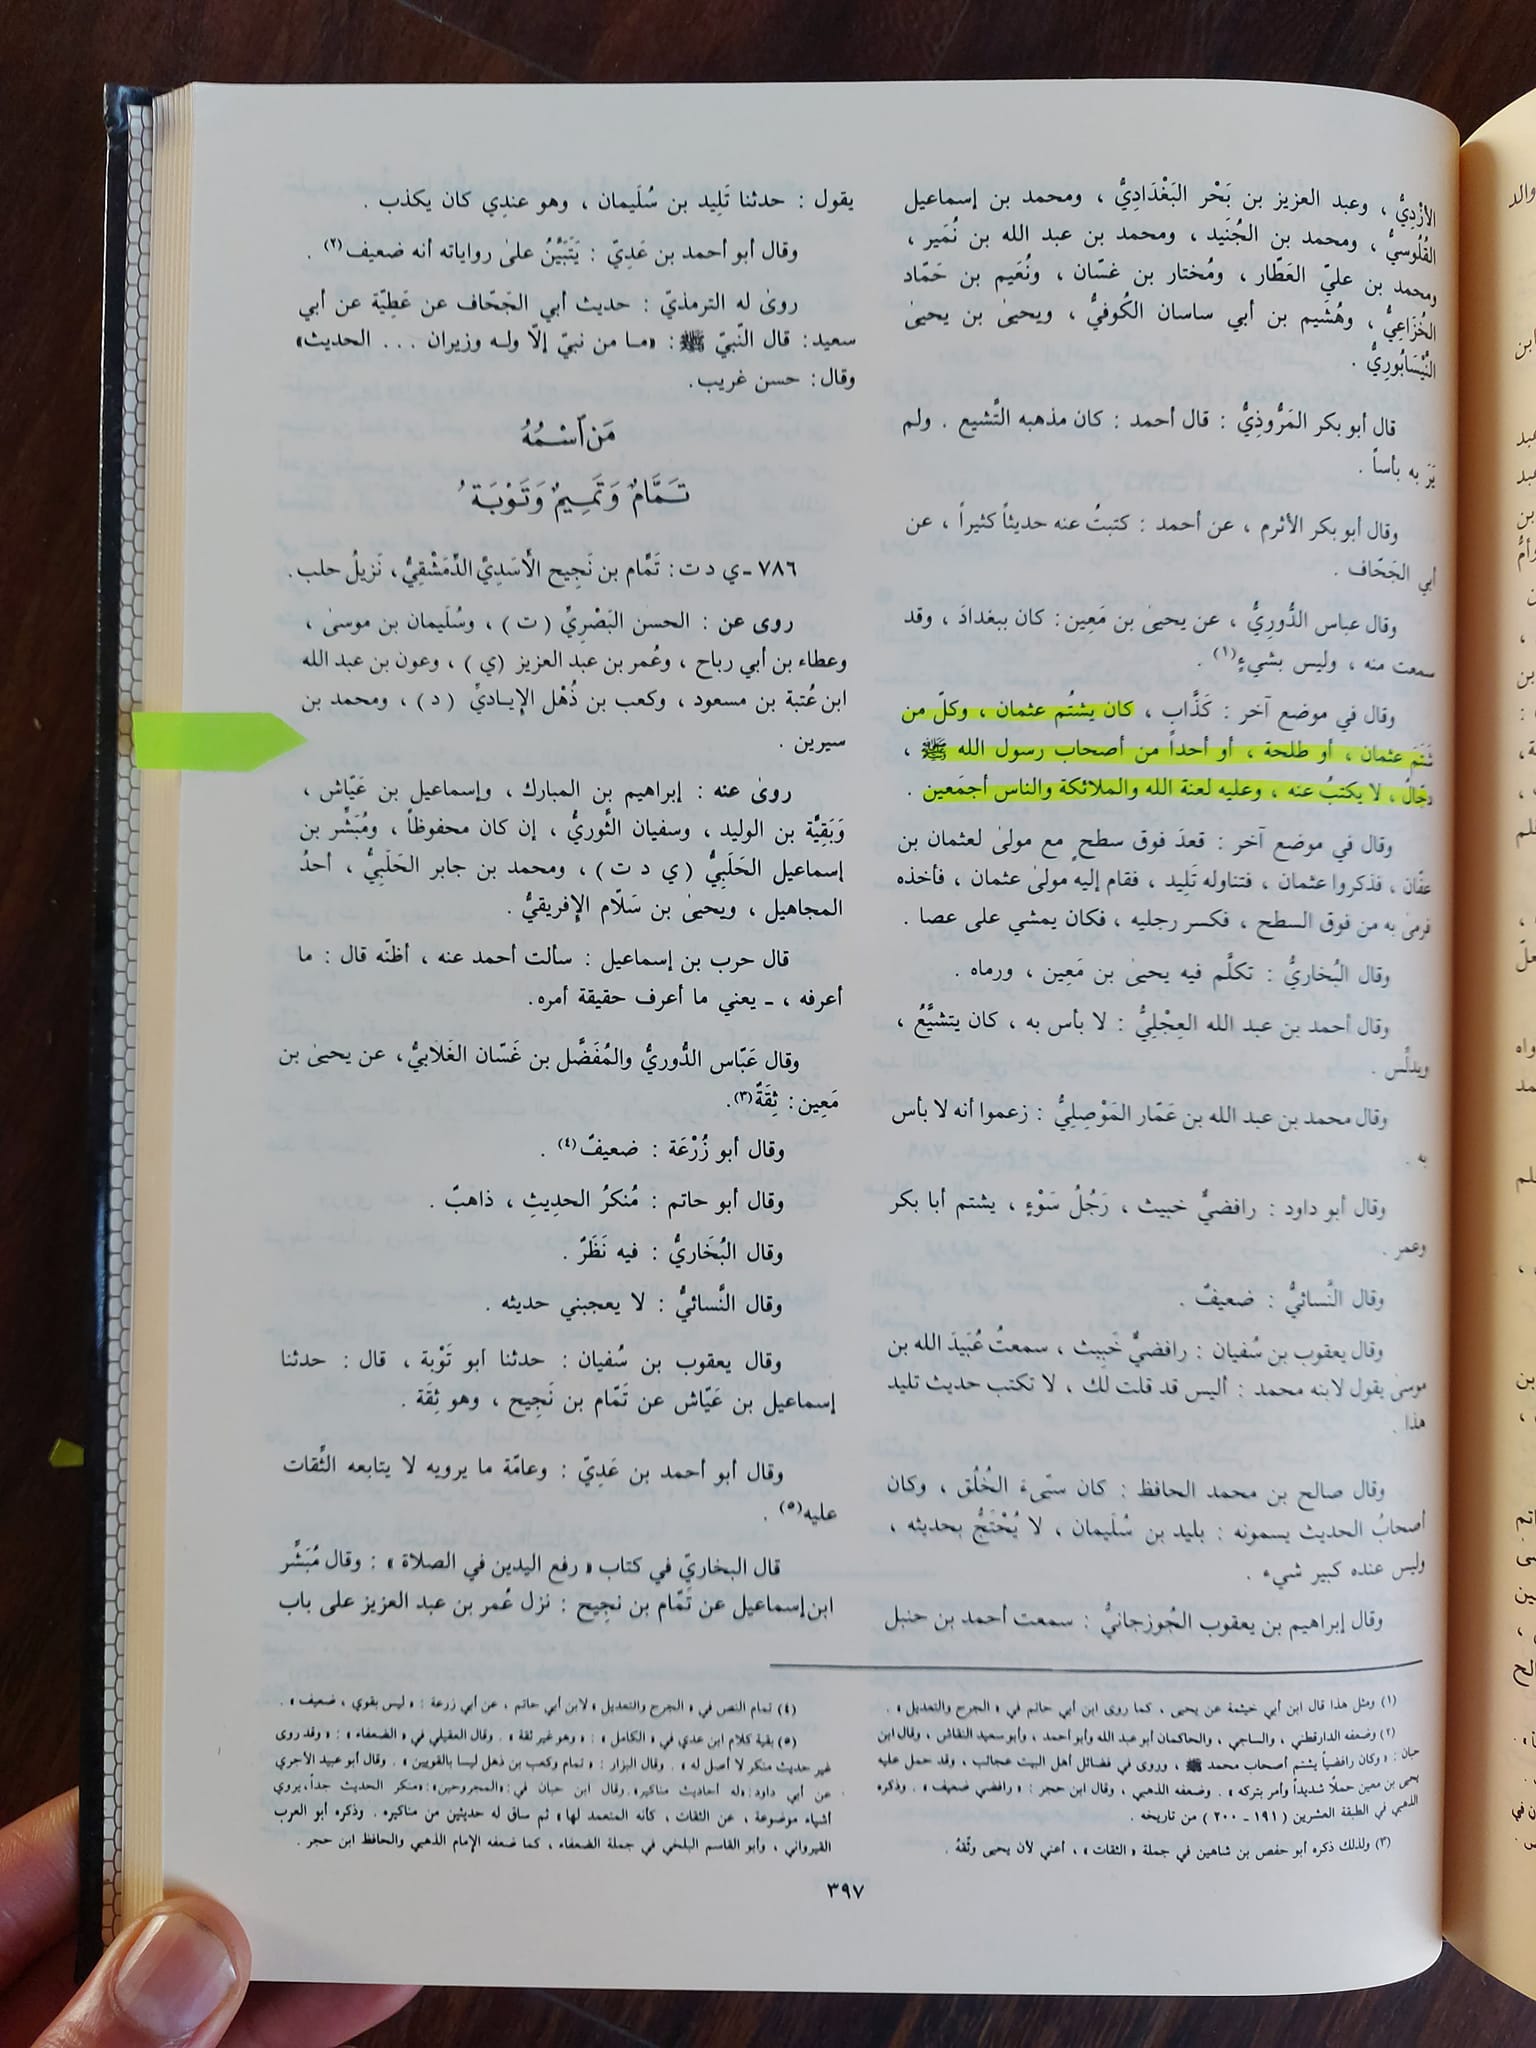 الأزْدِيُّ ، وعبد العزيز بن بَحْر البَغْدَادِيُّ ، ومحمد بن إسماعيل
القُلُوسيُّ ، ومحمد بن الجُنَيد ، ومحمد بن عبد الله بن نُمَير ،
ومحمد بن عليّ العَطّار ، ومُختار بن غسّان ، ونُعَيم بن حَمّاد
الخُزَاعِيُّ ، وهُشَيم بن أبي ساسان الكُوفيُّ ، ويحيىٰ بن يحيىٰ
النَّيْسَابُورِيُّ .
قال أبو بكر المَرُّوذِيُّ : قال أحمد : كان مذهبه التَّشيع . ولم
يَرَ به بأساً .
وقال أبو بكر الأثرم ، عن أحمد : كتبتُ عنه حديثاً كثيراً ، عن
أبي الجَحّاف .
وقال عباس الدُّورِيُّ ، عن يحيىٰ بن مَعِين: كان ببغدادَ ، وقد
سمعت منه ، وليس بشيءٍ(١) .
وقال في موضع آخر : كَذَّاب ، كان يشتُم عثمان ، وكلّ من
شَتَمَ عثمان ، أو طلحة ، أو أحداً من أصحاب رسول الله ﷺ ،
دجّالٌ ، لا يكتبُ عنه ، وعليه لعنة الله والملائكة والناس أجمَعين .
وقال في موضع آخر : قعدَ فوق سطحٍ مع مولىٰ لعثمان بن
عفّان ، فذكروا عثمان ، فتناوله تَلِيد ، فقام إليه مولىٰ عثمان ، فأخذه
فرمىٰ به من فوق السطح ، فكسر رجليه ، فكان يمشي على عصا .
وقال البُخاريُّ : تكلَّم فيه يحيىٰ بن مَعِين ، ورماه .
وقال أحمد بن عبد الله العِجْلِيُّ : لا بأس به ، كان يتشيَّعُ ،
ويدلِّس .
وقال محمد بن عبد الله بن عَمّار المَوْصِلِيُّ : زعموا أنه لا بأس
به .
وقال أبو داود : رافضيٌّ خبيث ، رَجُلُ سَوْءٍ ، يشتم أبا بكر
وعمر .
وقال النَّسائيُّ : ضعيفٌ .
وقال يعقوب بن سُفيان : رافضيٌّ خَبِيث ، سمعتُ عُبَيدَ الله بن
موسىٰ يقول لابنه محمد : أليس قد قلت لك ، لا تكتب حديث تليد
هذا .
وقال صالح بن محمد الحافظ : كان سيّىءَ الخُلُق ، وكان
أصحابُ الحديث يسمونه : بليد بن سُلَيمان ، لا يُحْتَجُّ بحديثه ،
وليس عنده كبير شيء .
وقال إبراهيم بن يعقوب الجُوزجانيُّ : سمعت أحمد بن حنبل
يقول : حدثنا تَلِيد بن سُلَيمان ، وهو عندِي كان يكذب .
وقال أبو أحمد بن عَدِيّ : يَتَبَيَّنُ علىٰ رواياته أنه ضعيف(٢) .
روىٰ له الترمذيّ : حديث أبي الجَحّاف عن عَطِيّة عن أبي
سعيد: قال النّبيّ ﷺ: «ما من نبيّ إلّا وله وزيران ... الحديث»
وقال: حسن غريب.
مَنِ ٱسْمُهُ
تَمَّامٌ وَتَمِيمٌ وَتَوْبَة
٧٨٦ - ي د ت: تَمَّام بن نَجِيح الأَسَدِيّ الدِّمَشْقِيُّ، نَزيلُ حلب.
روى عن : الحسن البَصْرِيِّ ( ت ) ، وسُلَيمان بن موسىٰ ،
وعطاء بن أبي رباح ، وعُمر بن عبد العزيز (ي ) ، وعون بن عبد الله
ابن عُتبة بن مسعود ، وكعب بن ذُهْل الإيادِيِّ ( د ) ، ومحمد بن
سيرين .
روىٰ عنه : إبراهيم بن المبارك ، وإسماعيل بن عَيّاش ،
وَبَقِيَّة بن الوليد ، وسفيان الثَّوريُّ ، إن كان محفوظاً ، ومُبَشِّر بن
إسماعيل الحَلَبِيُّ ( ي د ت ) ، ومحمد بن جابر الحَلَبِيُّ ، أحدُ
المجاهيل ، ويحيىٰ بن سَلّام الإفريقيُّ .
قال حرب بن إسماعيل : سألت أحمد عنه ، أظنّه قال : ما
أعرفه ، - يعني ما أعرف حقيقة أمره.
وقال عَبّاس الدُّوريُّ والمُفَضَّل بن غَسّان الغَلَابيُّ، عن يحيىٰ بن
مَعِين: ثِقَةٌ(٣).
وقال أبو زُرْعَة : ضعيفٌ(٤) .
وقال أبو حاتم : مُنكرُ الحدِيثِ ، ذاهبٌ .
وقال البُخَاريُّ : فيه نَظَرٌ .
وقال النَّسائيُّ : لا يعجبني حديثه .
وقال يعقوب بن سُفيان : حدثنا أبو تَوْبة ، قال : حدثنا
إسماعيل بن عَيّاش عن تَمّام بن نَجِيح ، وهو ثِقَة .
وقال أبو أحمد بن عَدِيّ : وعامّة ما يرويه لا يتابعه الثِّقات
عليه(٥) .
قال البخاريّ في كتاب « رفع اليدين في الصلاة » : وقال مُبَشِّر
ابن إسماعيل عن تَمّام بن نجِيح : نزل عُمر بن عبد العزيز على باب
(١) ومثل هذا قال ابن أبي خيثمة عن يحيى ، كما روى ابن أبي حاتم في « الجرح والتعديل » .
(٢) وضعفه الدارقطني ، والساجي ، والحاكمان أبو عبد الله وأبو أحمد ، وأبو سعيد النقاش ، وقال ابن
حبان : « وكان رافضياً يشتم أصحاب محمد ﷺ ، وروى في فضائل أهل البيت عجائب ، وقد حمل عليه
يحيى بن معين حملًا شديداً وأمر بتركه » . وضعفه الذهبي ، وقال ابن حجر : « رافضي ضعيف » . وذكره
الذهبي في الطبقة العشرين ( ١٩١ - ٢٠٠ ) من تاريخه .
(٣) ولذلك ذكره أبو حفص بن شاهين في جملة « الثقات » ، أعني لأن يحيى وثّقهُ .
(٤) تمام النص في « الجرح والتعديل » لابن أبي حاتم ، عن أبي زرعة : « ليس بقوي ، ضعيف » .
(٥) بقية كلام ابن عدي في « الكامل » : « وهو غير ثقة » . وقال العقيلي في « الضعفاء » : « وقد روى
غير حديث منكر لا أصل له » . وقال البزار : « تمام وكعب بن ذهل ليسا بالقويين » . وقال أبو عبيد الآجري
عن أبي داود: «له أحاديث مناكير». وقال ابن حبان في: «المجروحين»: «منكر الحديث جداً، يروي
أشياء موضوعة ، عن الثقات ، كأنه المتعمد لها» ثم ساق له حديثين من مناكيره . وذكره أبو العرب
القيرواني ، وأبو القاسم البلخي في جملة الضعفاء ، كما ضعفه الإمام الذهبي والحافظ ابن حجر .
٣٩٧